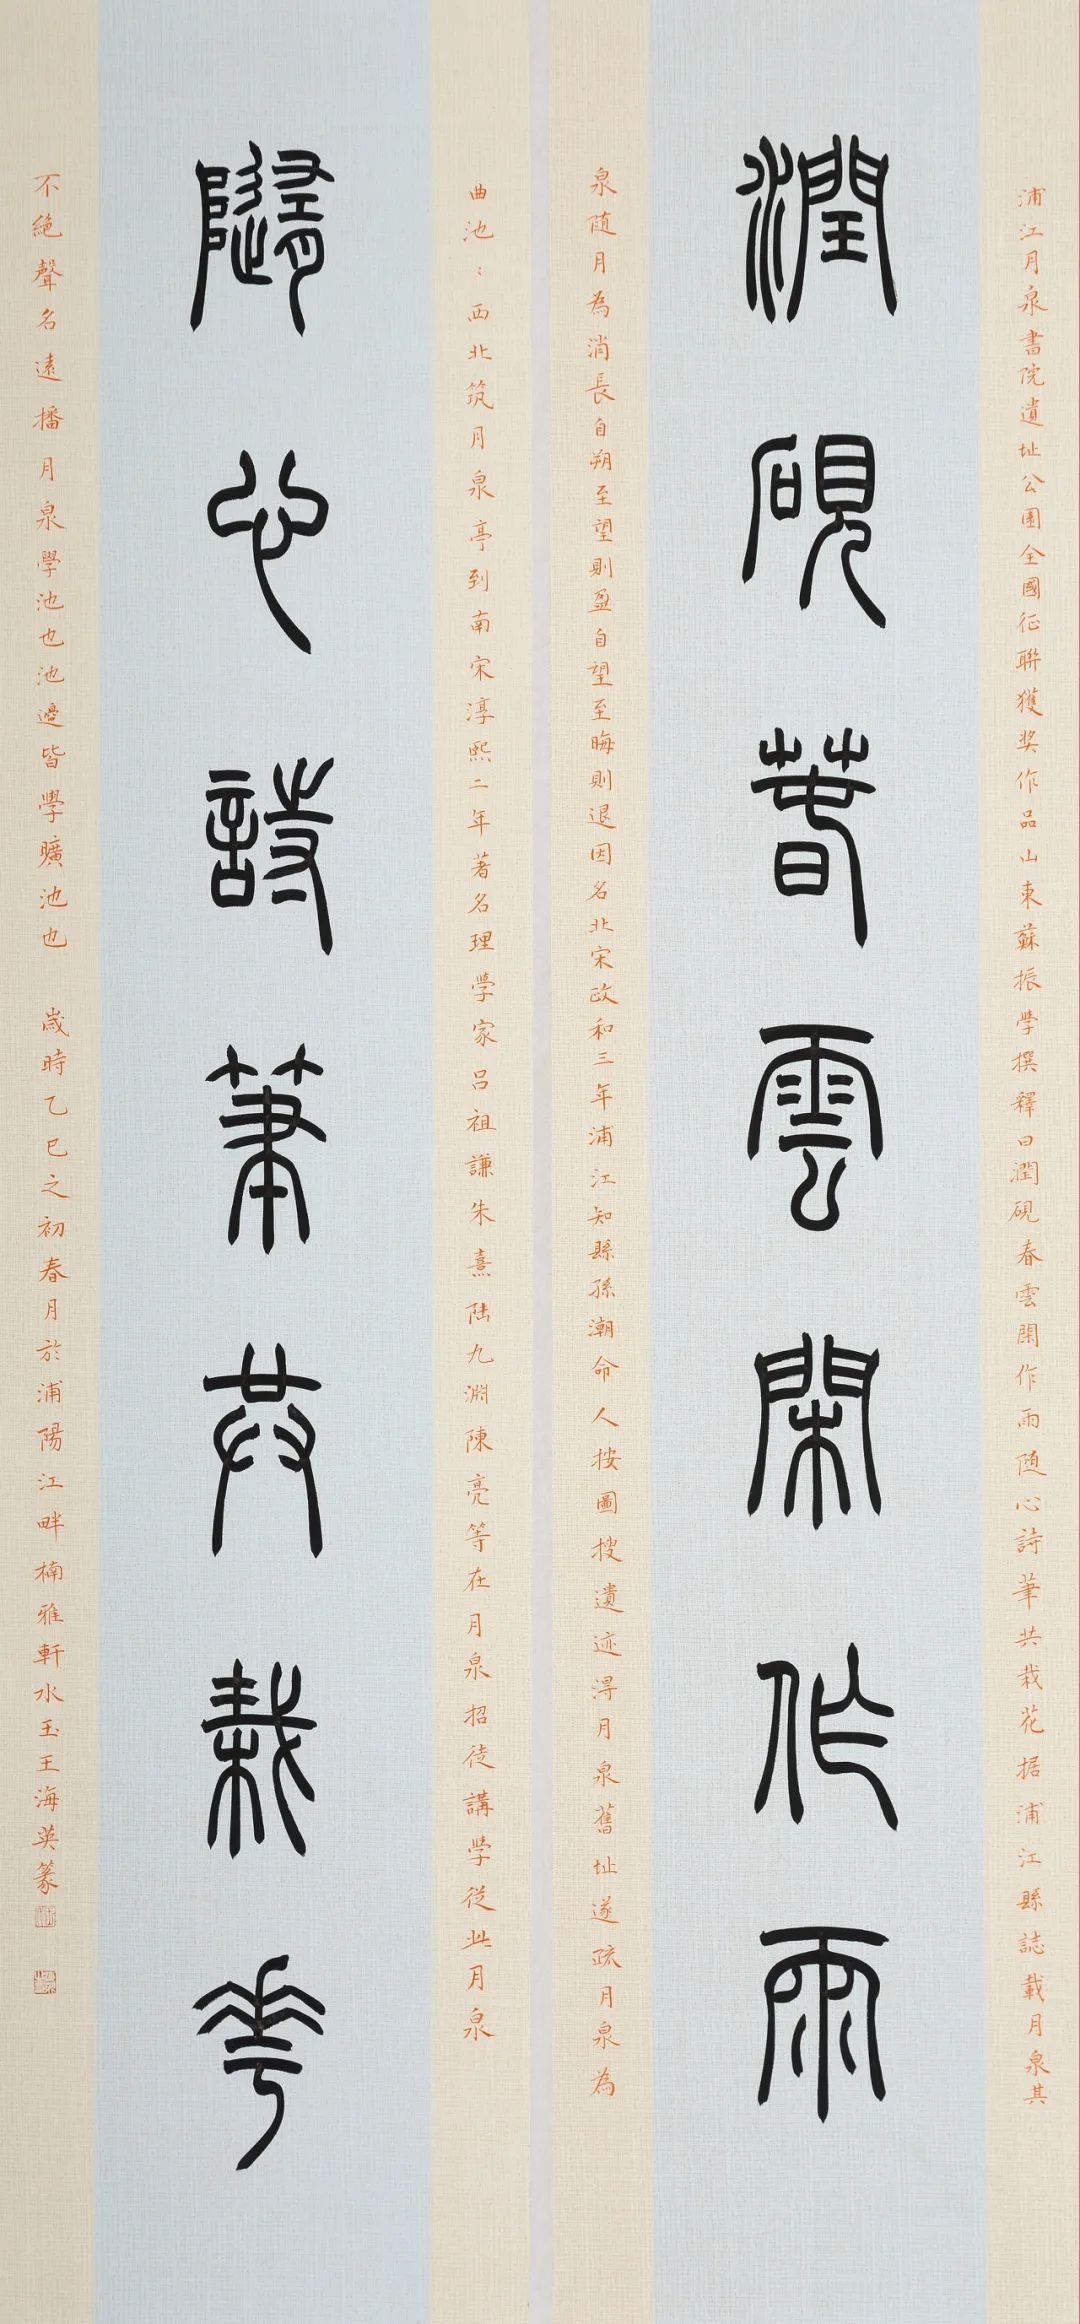 浦江月泉書院遺址公園全國征聯獲奖作品山東蘇振学撰釋曰潤硯春雲閑作雨随心詩筆共栽花据浦江縣誌載月泉其
潤硯春雲閑作雨
泉随月為消長自朔至望則盈自望至晦則退因名北宋政和三年浦江知縣孫潮命人按圖搜遺迹得月泉舊址遂疏月泉為
曲池：西北筑月泉亭到南宋淳熙二年著名理學家吕祖謙朱熹陆九淵陳亮等在月泉招徒講學從此月泉
隨心詩筆共栽華
不絕聲名遠播月泉學池也池邊皆學曠池也 歲時乙巳之初春月於浦陽江畔楠雅軒水玉王海英篆